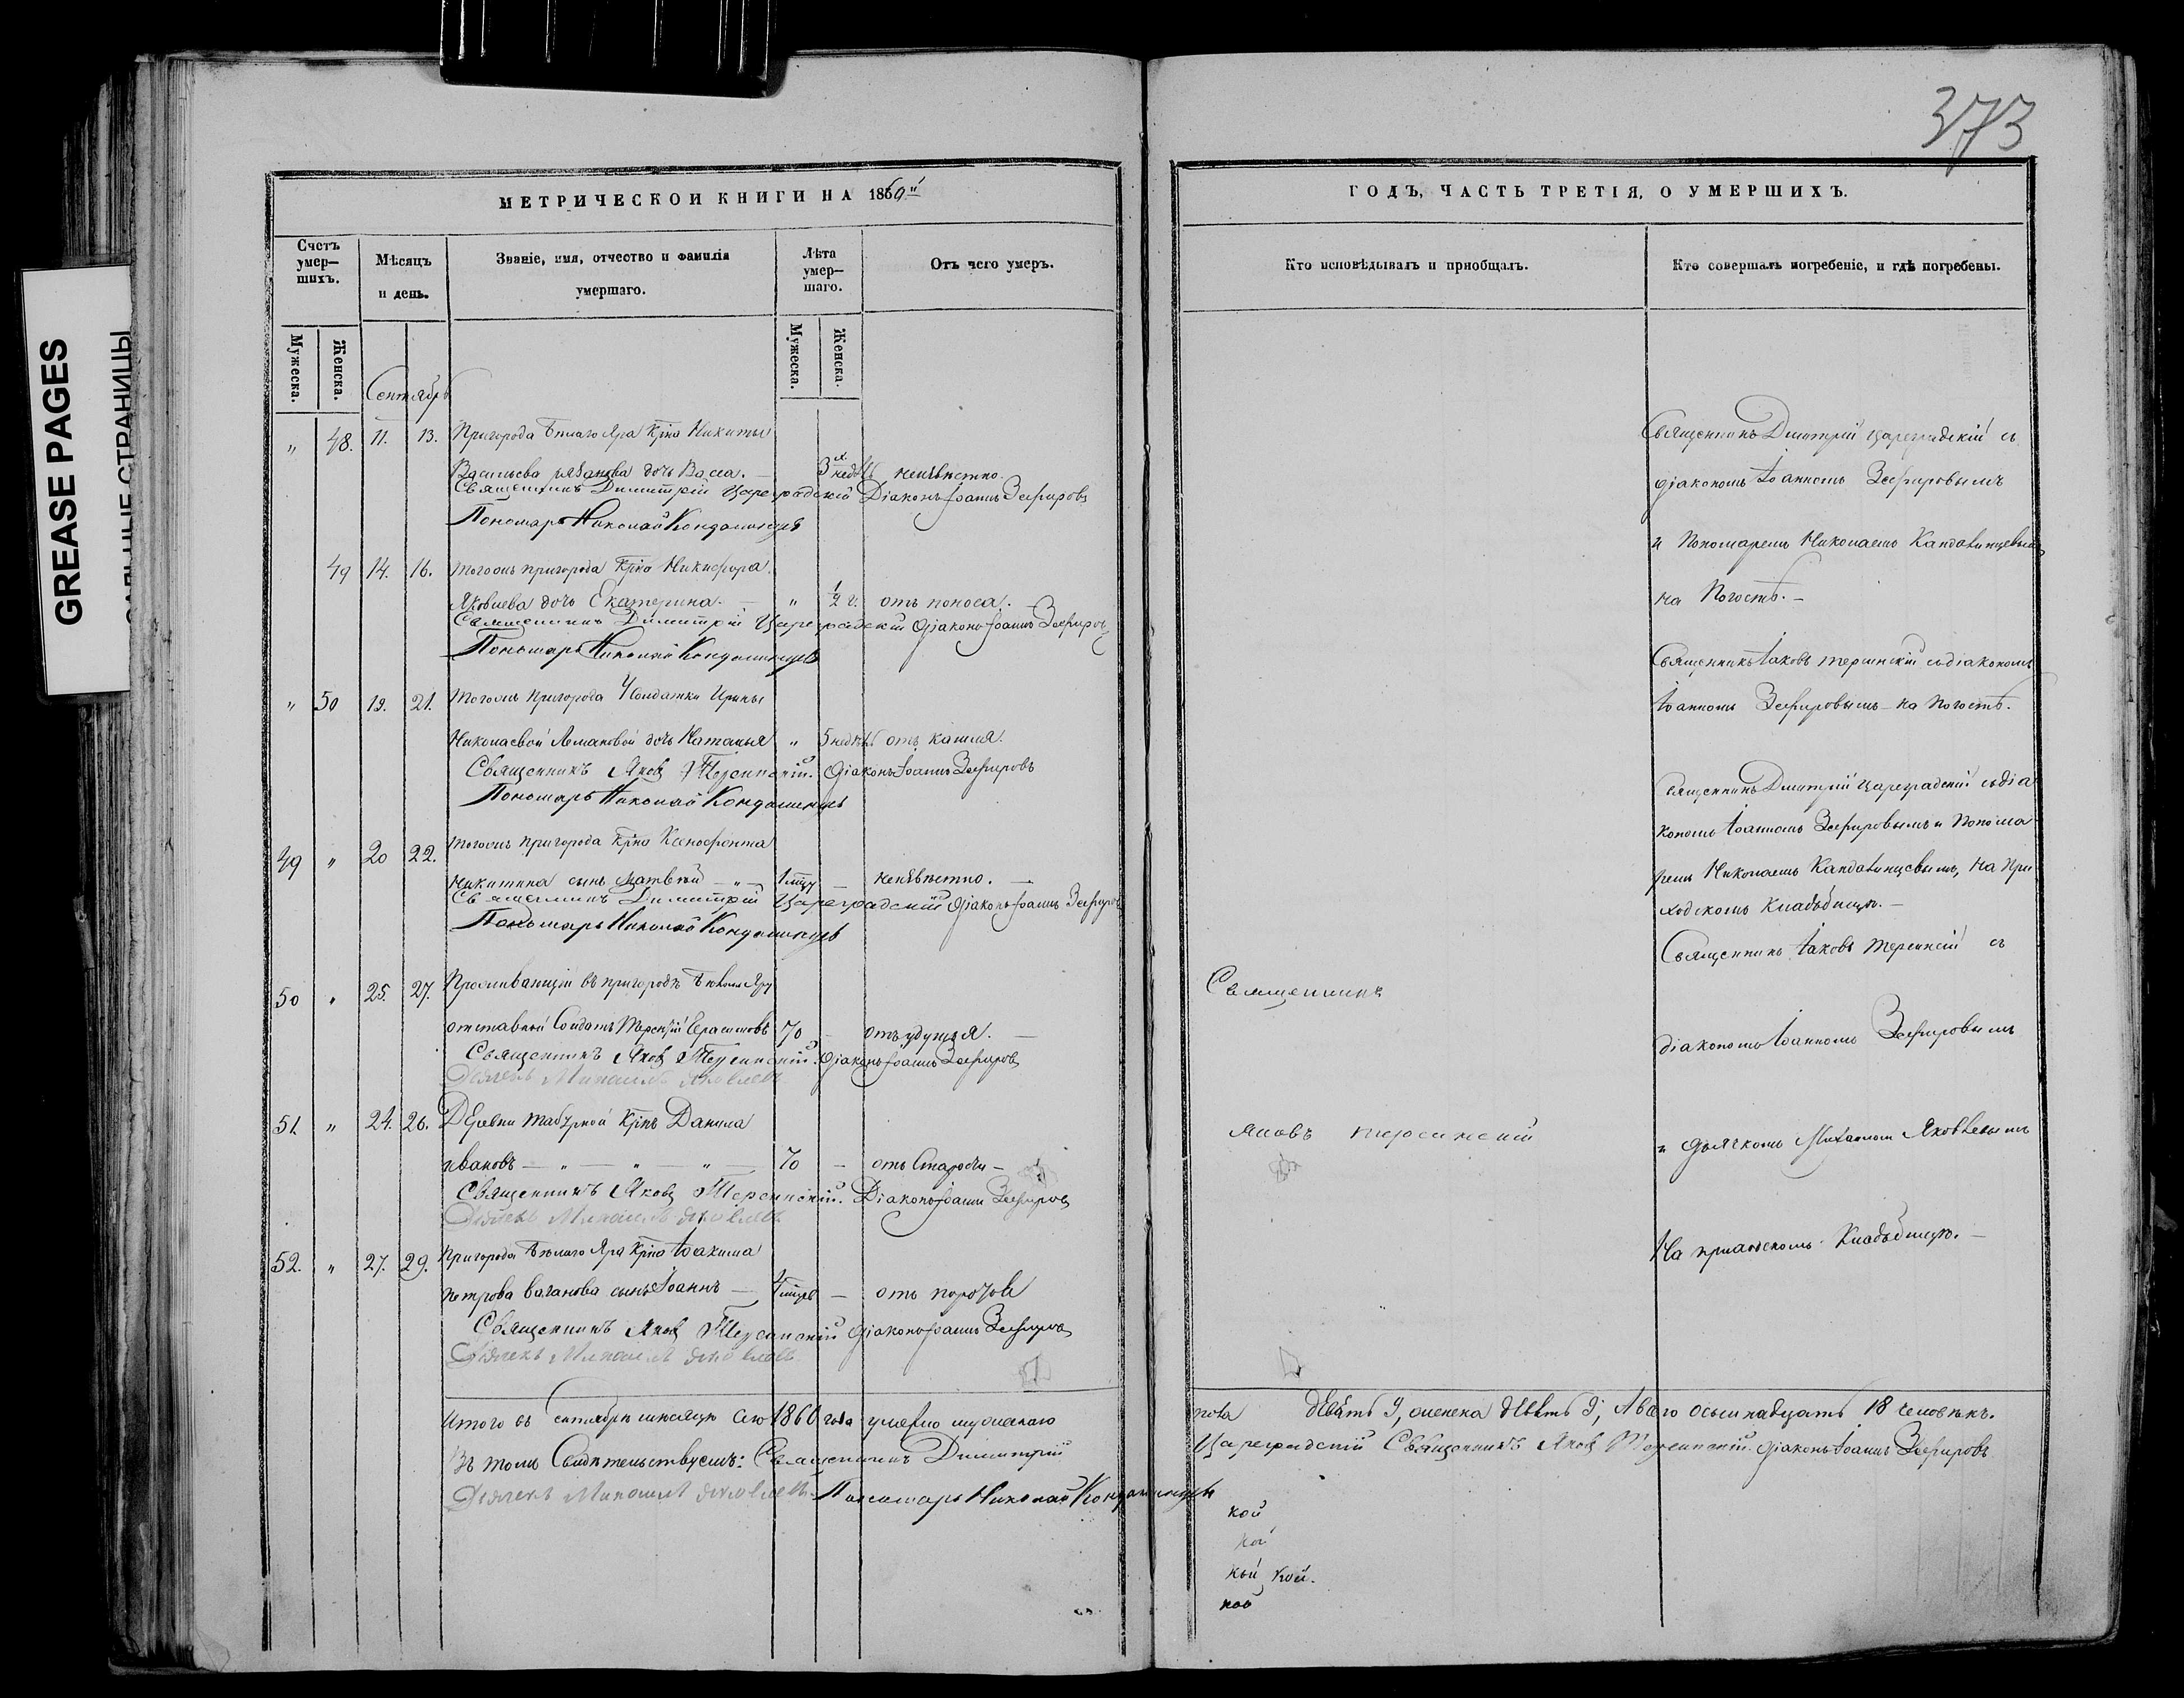 373
GREASE PAGES
САЛЬНЫЕ СТРАНИЦЫ
МЕТРИЧЕСКОЙ КНИГИ НА 1860й
Счетъ умер-
шихъ.
Мѣсяцъ
и день.
Званіе, имя, отчество и фамилія
умершаго.
Лѣта
умер-
шаго.
Отъ чего умеръ.
Мужеска.
Женска.
Мужеска.
Женска.
Сентябрь
" 48. 11. 13. Пригорода Бѣлаго Яра Крна Никиты
Васильева дочь Васса. 3 недѣль неизвѣстно.
Священникъ Димитрій Цареградскій Діаконъ Іоаннъ Зефировъ
Пономарь Николай Кондалинцевъ
49 14. 16. Тогожъ пригорода Крна Никифора
Яковлева дочь Екатерина. " 1/2 г. отъ поноса.
Священникъ Димитрій Цареградскій Діаконъ Іоаннъ Зефировъ
Пономарь Николай Кондалинцевъ
" 50 19. 21. Тогожъ пригорода Солдатки Ирины
Николаевой дочь Наталья " 5 недѣль отъ кашля.
Священникъ Яковъ Терсинскій. Діаконъ Іоаннъ Зефировъ
Пономарь Николай Кондалинцевъ
49 " 20 22. Тогожъ пригорода Крна Ксенофонта
Никитина сынъ Матвѣй — " — неизвѣстно.
Священникъ Димитрій Цареградскій Діаконъ Іоаннъ Зефировъ
Пономарь Николай Кондалинцевъ
50 " 25. 27. Проживающій въ пригородѣ Бѣломъ Яру
отставной Солдатъ Герасимовъ 70 — отъ удушья.
Священникъ Яковъ Терсинскій. Діаконъ Іоаннъ Зефировъ
Дьячекъ Михаилъ Яковлевъ
51. " 24. 26. Деревни Крнъ Данила
Ивановъ — " — " — " — 70 — отъ Старости —
Священникъ Яковъ Терсинскій. Діаконъ Іоаннъ Зефировъ
Дьячекъ Михаилъ Яковлевъ
52. " 27. 29. Пригорода Бѣлаго Яра Крна Іоакима
Петрова сынъ Іоаннъ —
Священникъ Яковъ Терсинскій Діаконъ Іоаннъ Зефировъ
Дьячекъ Михаилъ Яковлевъ
Итого въ Сентябрѣ мѣсяцѣ сего 1860 года умерло мужескаго
Въ томъ Свидѣтельствуемъ: Священникъ Димитрій
Дьячекъ Михаилъ Яковлевъ Пономарь Николай Кондалинцевъ
ГОДЪ, ЧАСТЬ ТРЕТІЯ, О УМЕРШИХЪ.
Кто исповѣдывалъ и пріобщалъ.
Кто совершалъ погребеніе, и гдѣ погребены.
Священникъ Димитрій Цареградскій съ
діакономъ Іоанномъ Зефировымъ
и Пономаремъ Николаемъ Кандалинцевымъ
на Погостѣ. —
Священникъ Іаковъ Терсинскій съ діакономъ
Іоанномъ Зефировымъ — на Погостѣ.
Священникъ Дмитрій Цареградскій съ діа
кономъ Іоанномъ Зефировымъ и Понома
ремъ Николаемъ Кандалинцевымъ, на При
ходскомъ Кладбищѣ. —
Священникъ Іаковъ Терсинскій съ
Священникъ
діакономъ Іоанномъ Зефировымъ
Яковъ Терсинскій
и дьячкомъ Михаиломъ Яковлевымъ
На приходскомъ Кладбищѣ. —
пола девять 9, женска девять 9, А всего осьмнадцать 18 человѣкъ.
Цареградскій Священникъ Яковъ Терсинскій. Діаконъ Іоаннъ Зефировъ
кой
кой
кой кой.
кой